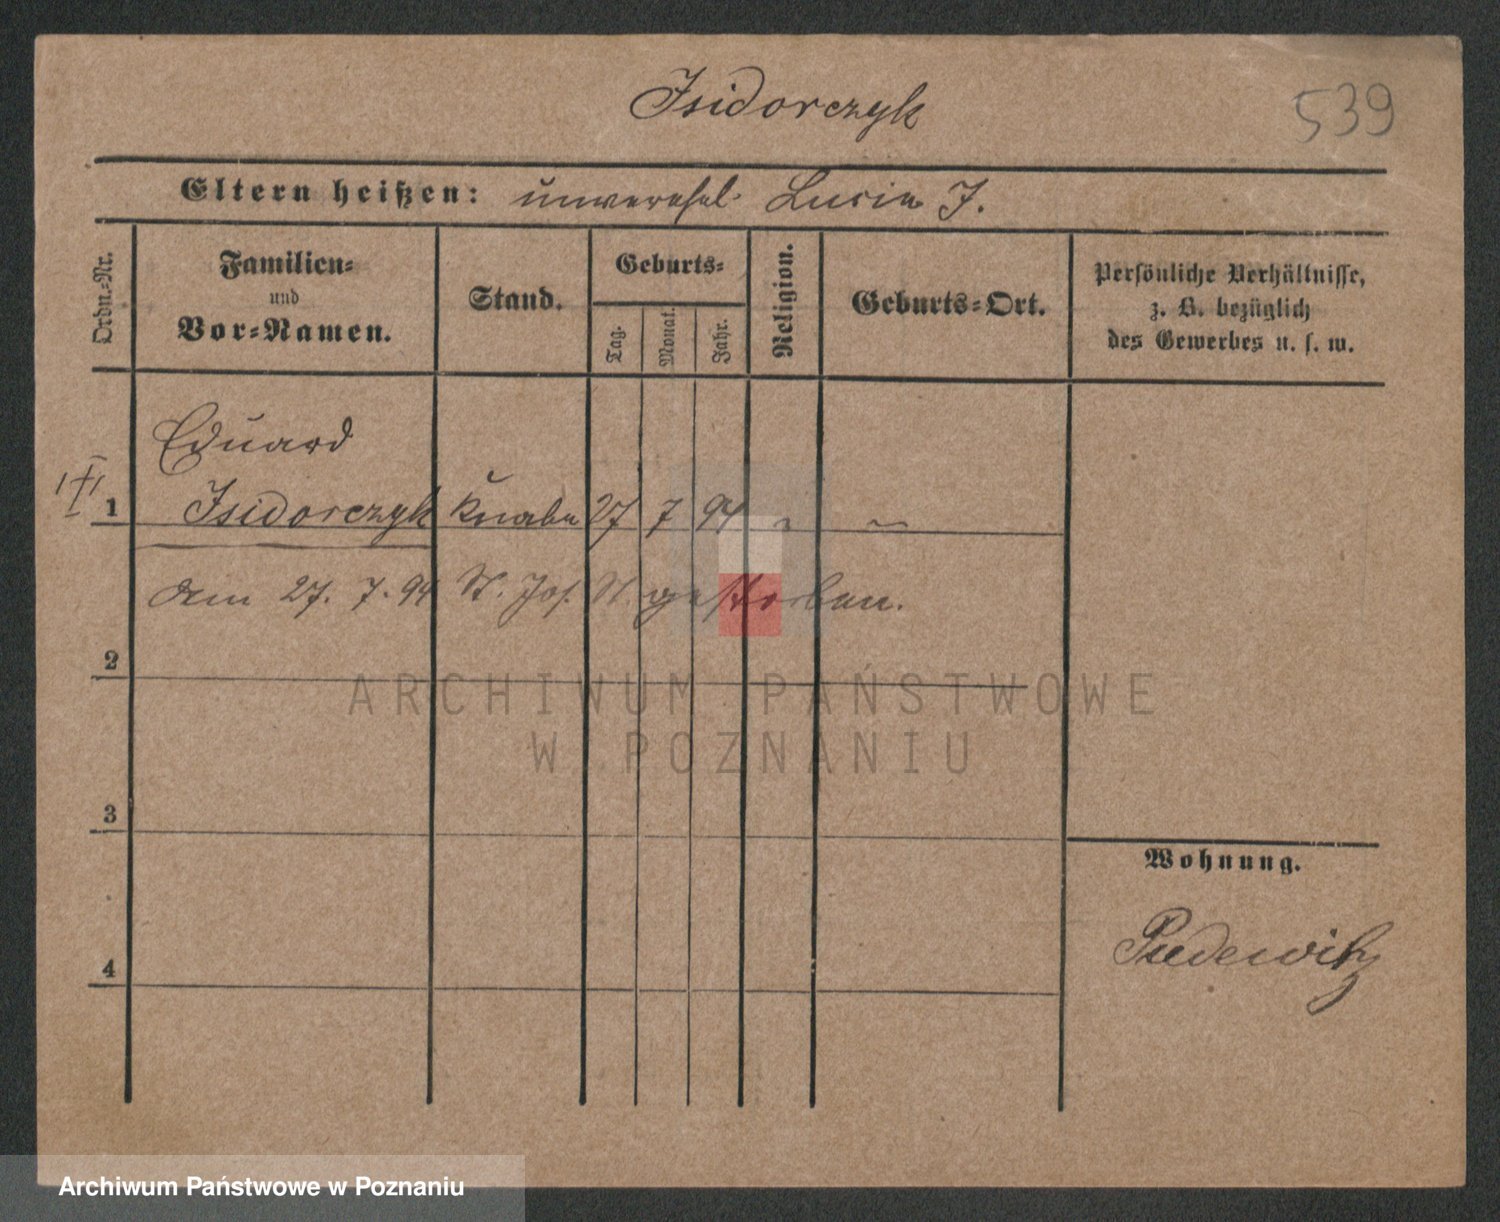 Isidorczyk
539
Eltern heißen: unverehel. Lucia I.
Ordn.-Nr.
Familien-
und
Vor-Namen.
Stand.
Geburts-
Tag.
Monat.
Jahr.
Religion.
Geburts-Ort.
Persönliche Verhältnisse,
z. B. bezüglich
des Gewerbes u. s. w.
Eduard
1 Isidorczyk Knabe 27 7 94
am 27. 7. 94 St. Jos. St. gestorben.
2
ARCHIWUM PAŃSTWOWE
W POZNANIU
3
Wohnung.
Pudewitz
4
Archiwum Państwowe w Poznaniu